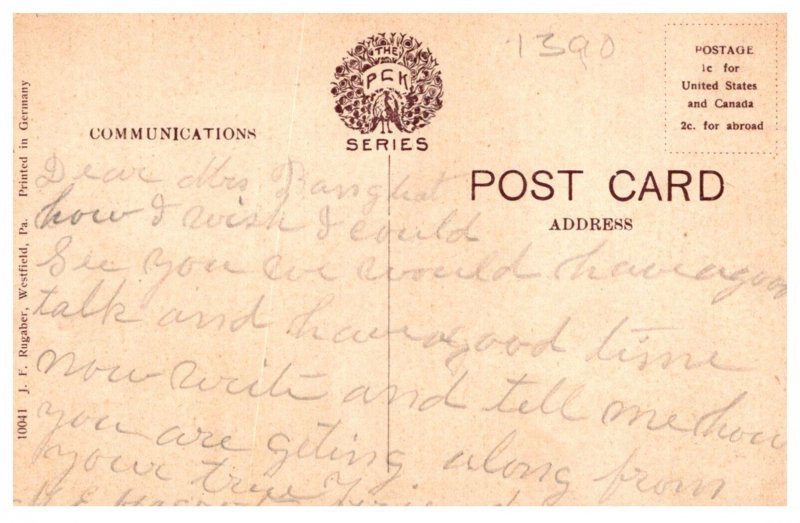 1390
THE
PCK
SERIES
POSTAGE
1c for
United States
and Canada
2c. for abroad
COMMUNICATIONS
POST CARD
ADDRESS
10041 J. F. Rugaber, Westfield, Pa. Printed in Germany
Dear Mrs
how I wish I could
See you we would have a good
talk and have a good time
now write and tell me how
you are geting along from
your true